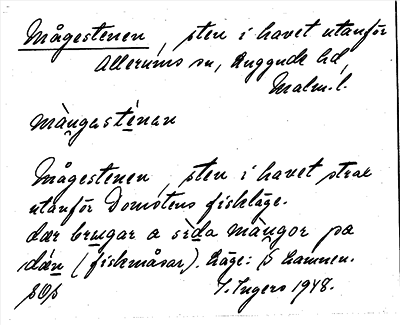 Mågestenen, sten i havet utanför
Allerums sn, Luggude hd,
Malm.l.
mångasténan
Mågestenen, sten i havet strax
utanför Domstens fiskläge.
där brugar a sida mångor pa
dæn (fiskmåsar). Läge: S hamnen.
I. Ingers 1948.